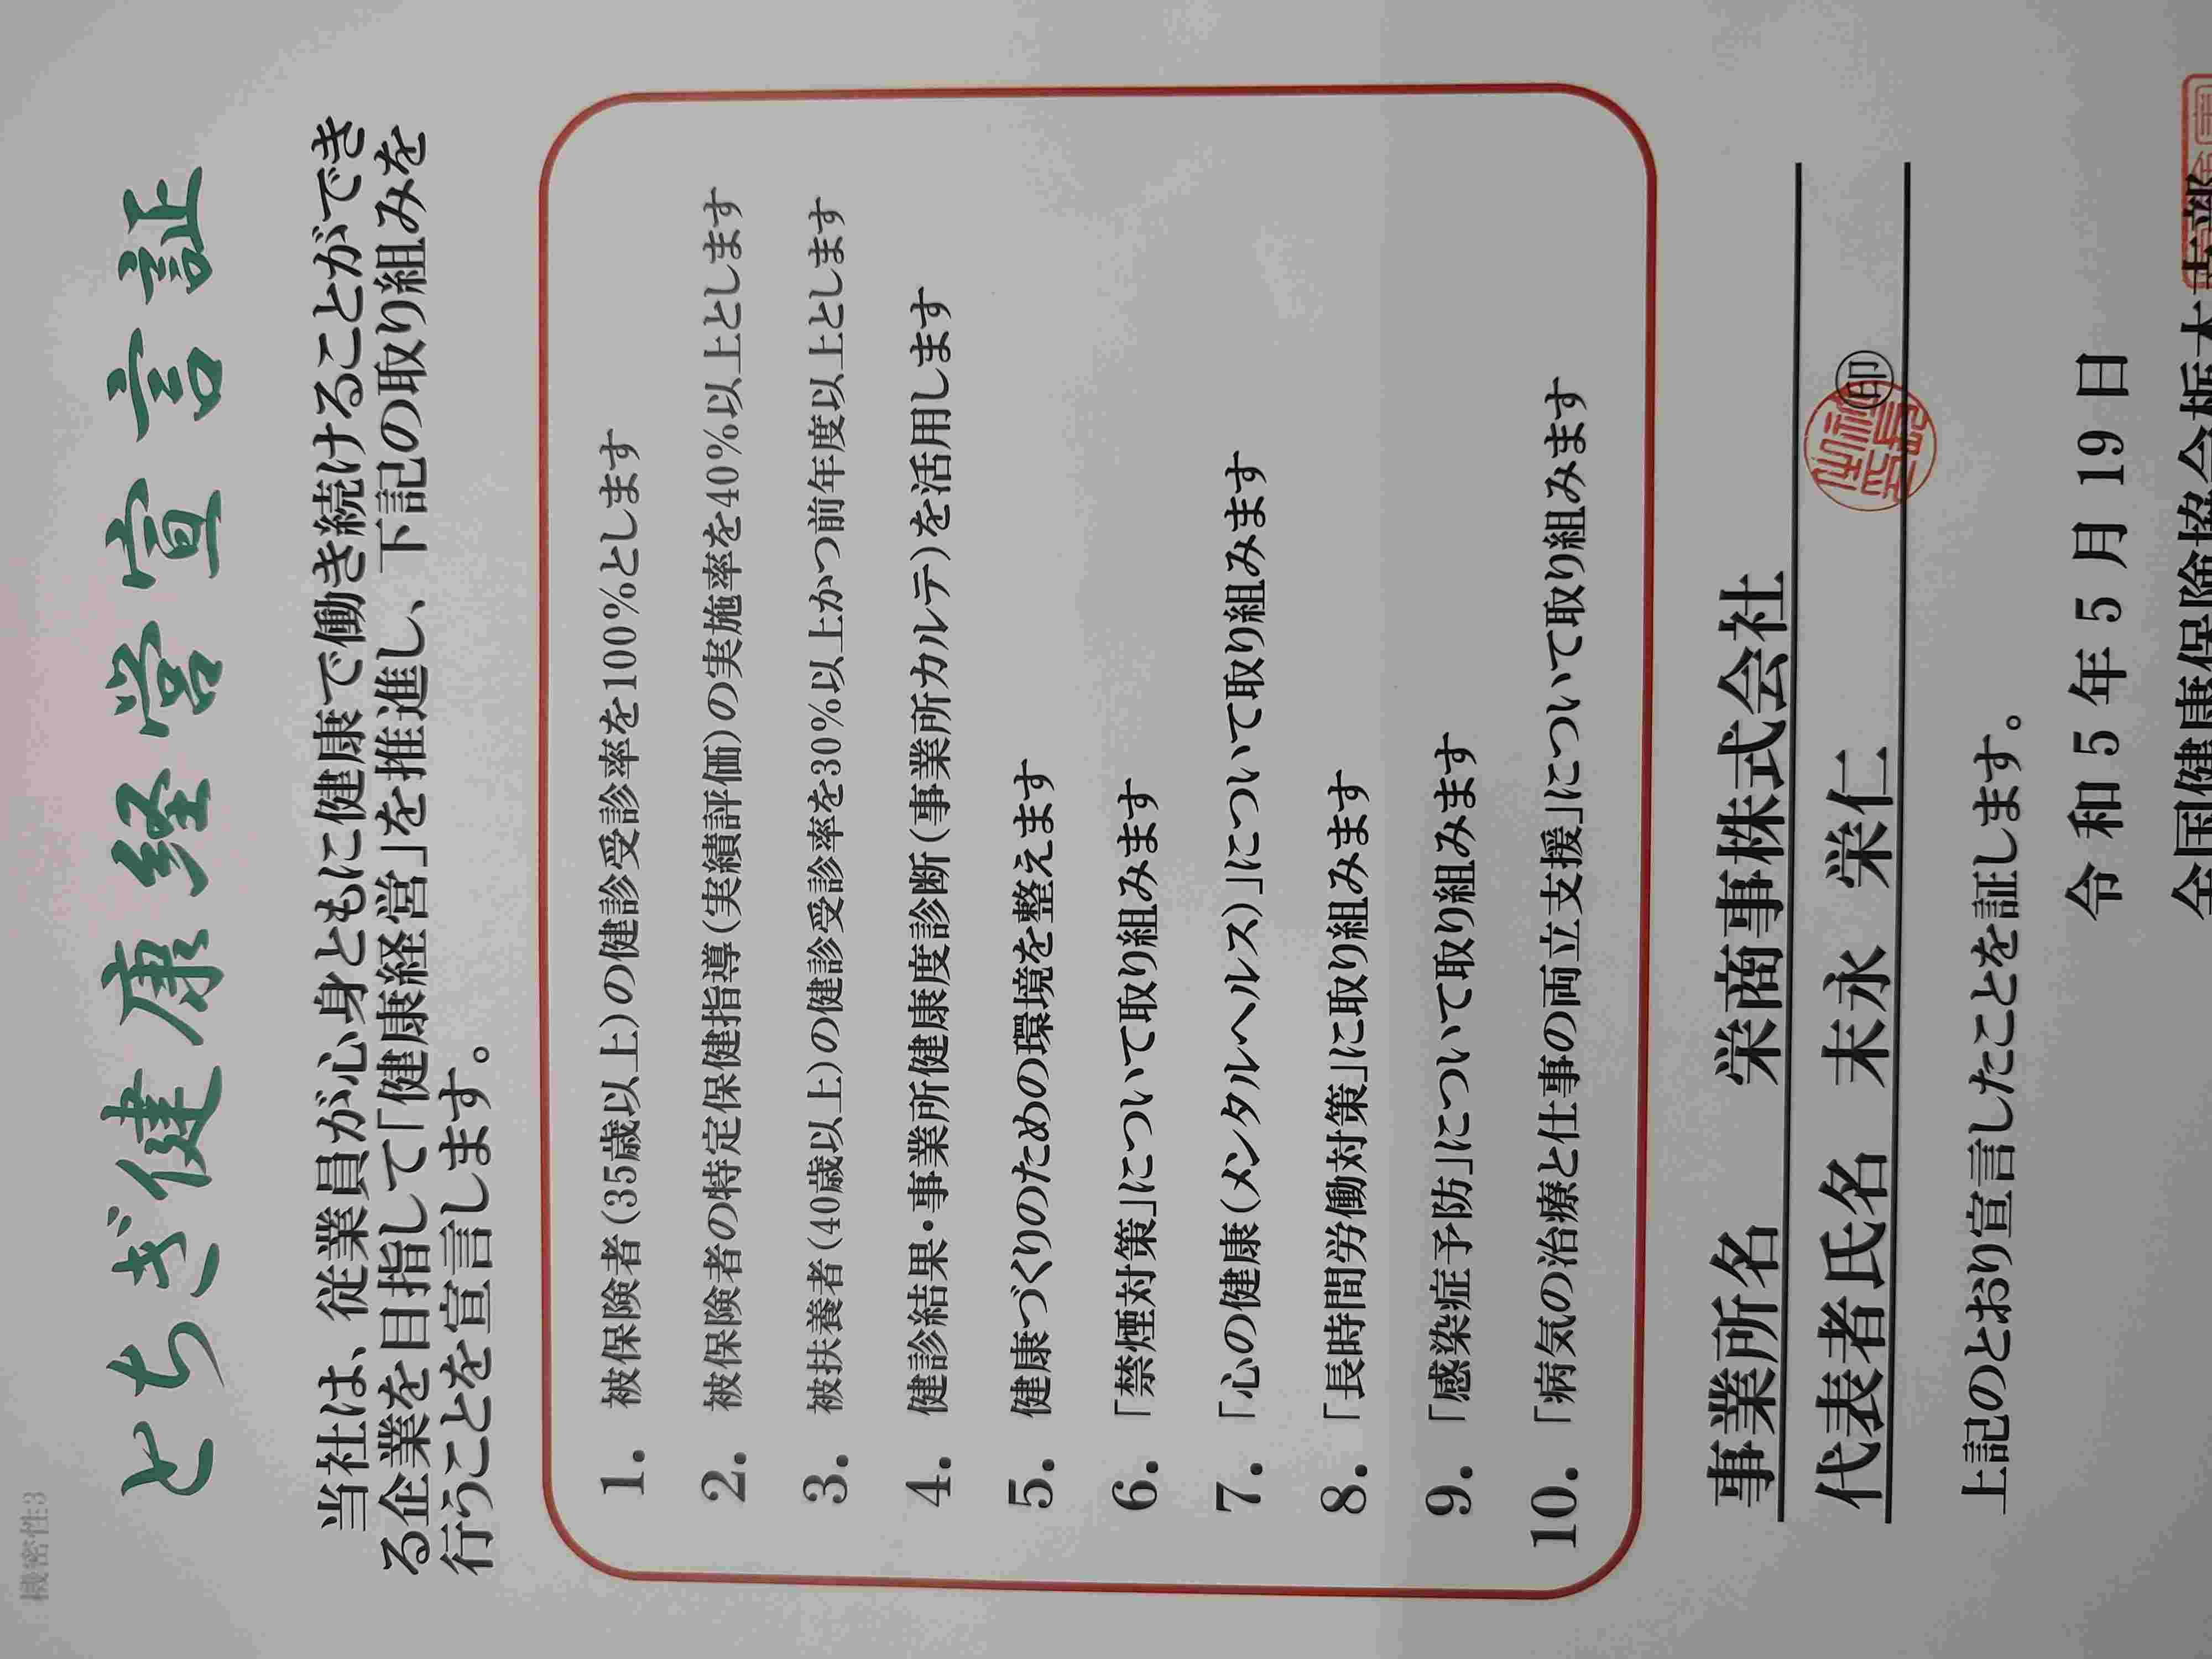 機密性3
とちぎ健康経営宣言証
当社は、従業員が心身ともに健康で働き続けることができ
る企業を目指して「健康経営」を推進し、下記の取り組みを
行うことを宣言します。
1. 被保険者(35歳以上)の健診受診率を100%とします
2. 被保険者の特定保健指導(実績評価)の実施率を40%以上とします
3. 被扶養者(40歳以上)の健診受診率を30%以上かつ前年度以上とします
4. 健診結果・事業所健康度診断(事業所カルテ)を活用します
5. 健康づくりのための環境を整えます
6. 「禁煙対策」について取り組みます
7. 「心の健康(メンタルヘルス)」について取り組みます
8. 「長時間労働対策」に取り組みます
9. 「感染症予防」について取り組みます
10. 「病気の治療と仕事の両立支援」について取り組みます
事業所名 栄商事株式会社
代表者氏名 末永 栄仁 印
上記のとおり宣言したことを証します。
令和5年5月19日
全国健康保険協会栃木支部